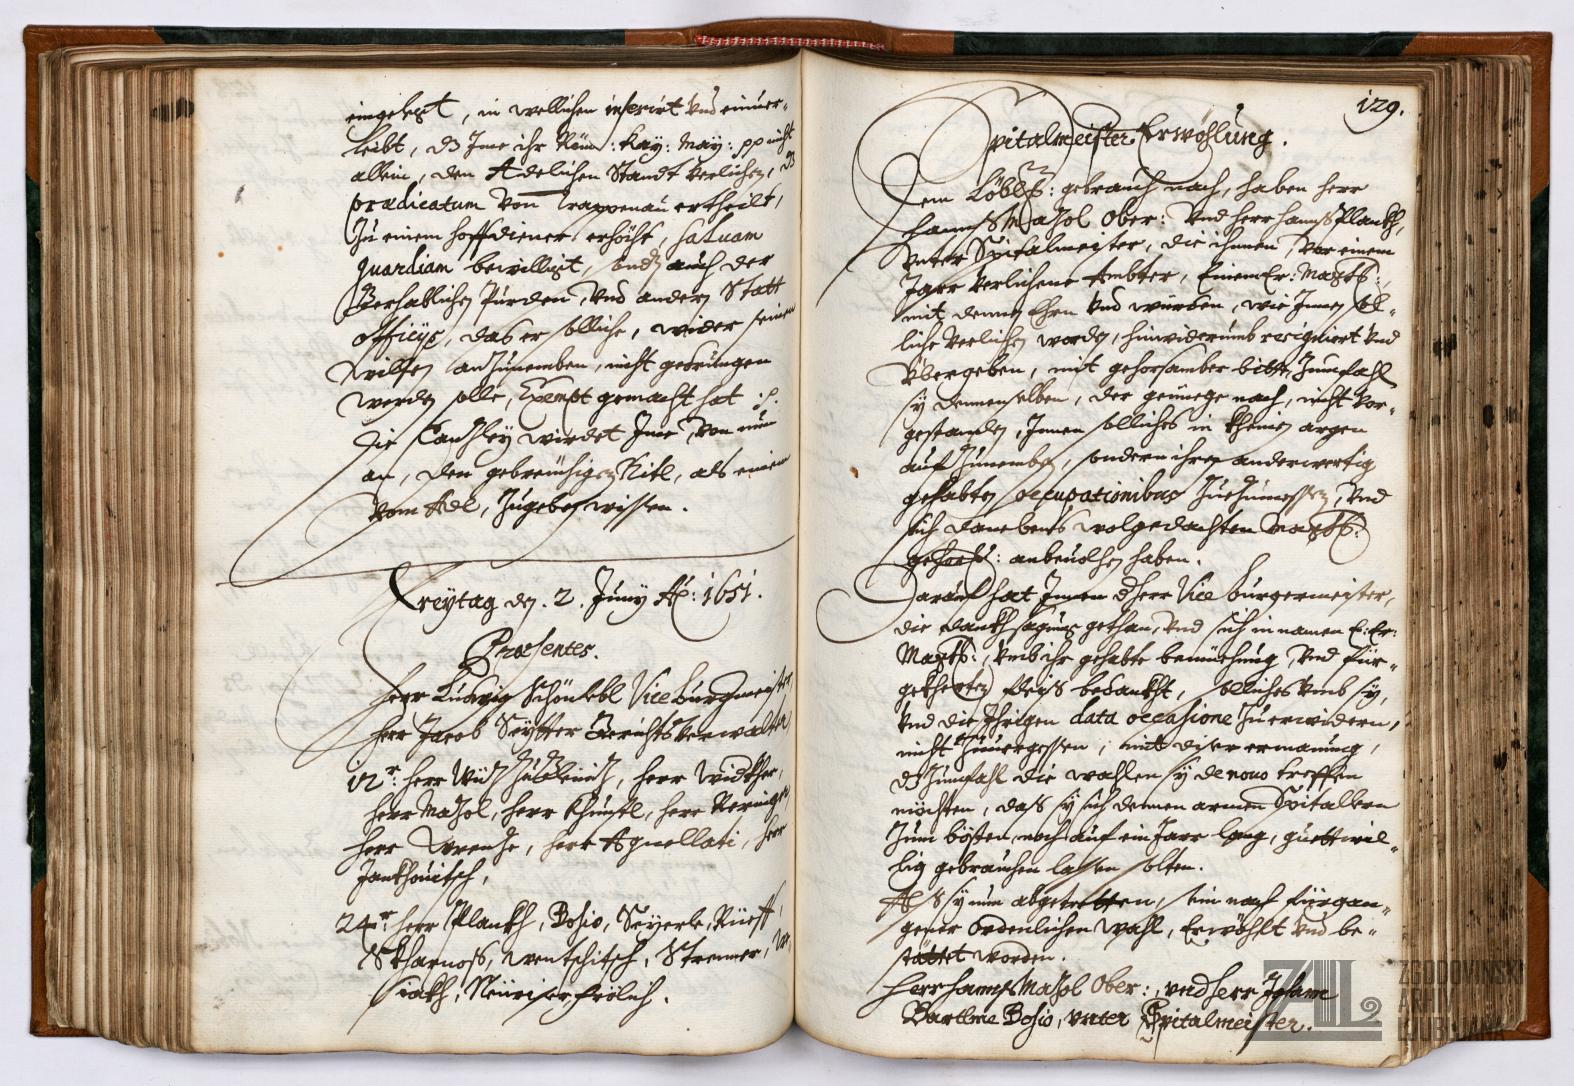 eingelegt, in wellichen inserirt und einuer-
leibt, dz Ime ihr Röm: Kay: May: pp nicht
allein, den Adelichen Standt verlichen, dz
prædicatum von Trappenau ertheilt,
Zu einem hoffdiener erhöcht, saluam
guardiam bewilliget, auch der
Burden, und andern Statt
officijs, das er solliche, wider seinen
willen anzunemben, nicht gedrungen
werden solle, Exempt gemacht hat
Die Canzley wirdet Ime, von nun
an, den gebreuhigen Titl, als einem
vom Adl, Zugeben wissen.
Freytag den. 2. Junij Aõ: 1651.
Præsentes.
Herr Ludwig Schönlebl Vice burgmeister
herr Jacob Seytter Gerichts verwalter
12r: herr , herr Widkher,
herr MaZol, herr , herr Veringer
herr Wrenze, herr Agnellati, herr
Jankhouitsch,
24r herr Plankh, Bosio, Seyerle, Rüeff,
Skharnoss, Wentschitsch, Stremer,
, frölich.
129.
Spitalmeister Erwöhlung.
Dem Löbl: gebrauch nach, haben herr
Hannß MaZol Ober: und herr hannß Plankh,
unter Spitalmeister, die ihnen, vor einem
Jarr verlichene Ambter, Einem Er: Magts:
mit denen Ehrn und würden, wie Inen sol-
liche verlichen worden, hinwiderumb resigniert und
übergeben, mit gehorsamber bitt, Zumfahl
sy demenselben, der genüege nach, nicht vor-
gestanden, Innen solliches in kheinen argen
auf Zunemben, sondern ihren anderwertig
gehabten occupationibus Zuezumessen, und
sich danebens wolgedachten Magts:
gehors: anbeuolhen haben.
Darauf hat Innen dherr Vice burgermeister,
die dankhsagung gethan, und sich in namen E: Er:
Magts:, umb ihr gehabte bemüehung, und für-
gekherten fleiß bedankht, solliches umb sy,
und die Ihrigen data occasione Zu erwidern,
nicht Zuuergessen, mit diser ermanung,
dz Zumfahl die wahlen sy de nouo treffen
möchten, daß sy sich denen armen Spitallern
Zum bösten, noch auf ein Jarr lang, guettwil-
lig gebrauchen lassen solten.
Alß sy nun abgetretten, sein nach fürgan-
gener ordenlichen wahl, Erwöhlt und be-
stättet worden.
Herr hannß MaZol Ober:, und herr Johann
Bartlme Bosio, unter Spitalmeister.
ZAL
ZGODOVINSKI
ARHIV
LJUBLJANA